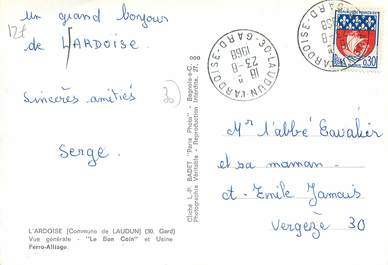 un grand bonjour
12f
de L'ARDOISE.
Sincères amitiés
30
Serge.
L'ARDOISE (Commune de LAUDUN) (30. Gard)
Vue générale - "Le Bon Coin" et Usine
Ferro-Alliage.
Cliché L.-P. BADET "Paris Photo" - Bagnols-s-C.
Photographie Véritable - Reproduction Interdite.
30-LAUDUN-L'ARDOISE-GARD
18 H
23-8
1968
0,30
Mr l'abbé Cavalier
et sa maman -
et Emile Jamais
Vergèze 30